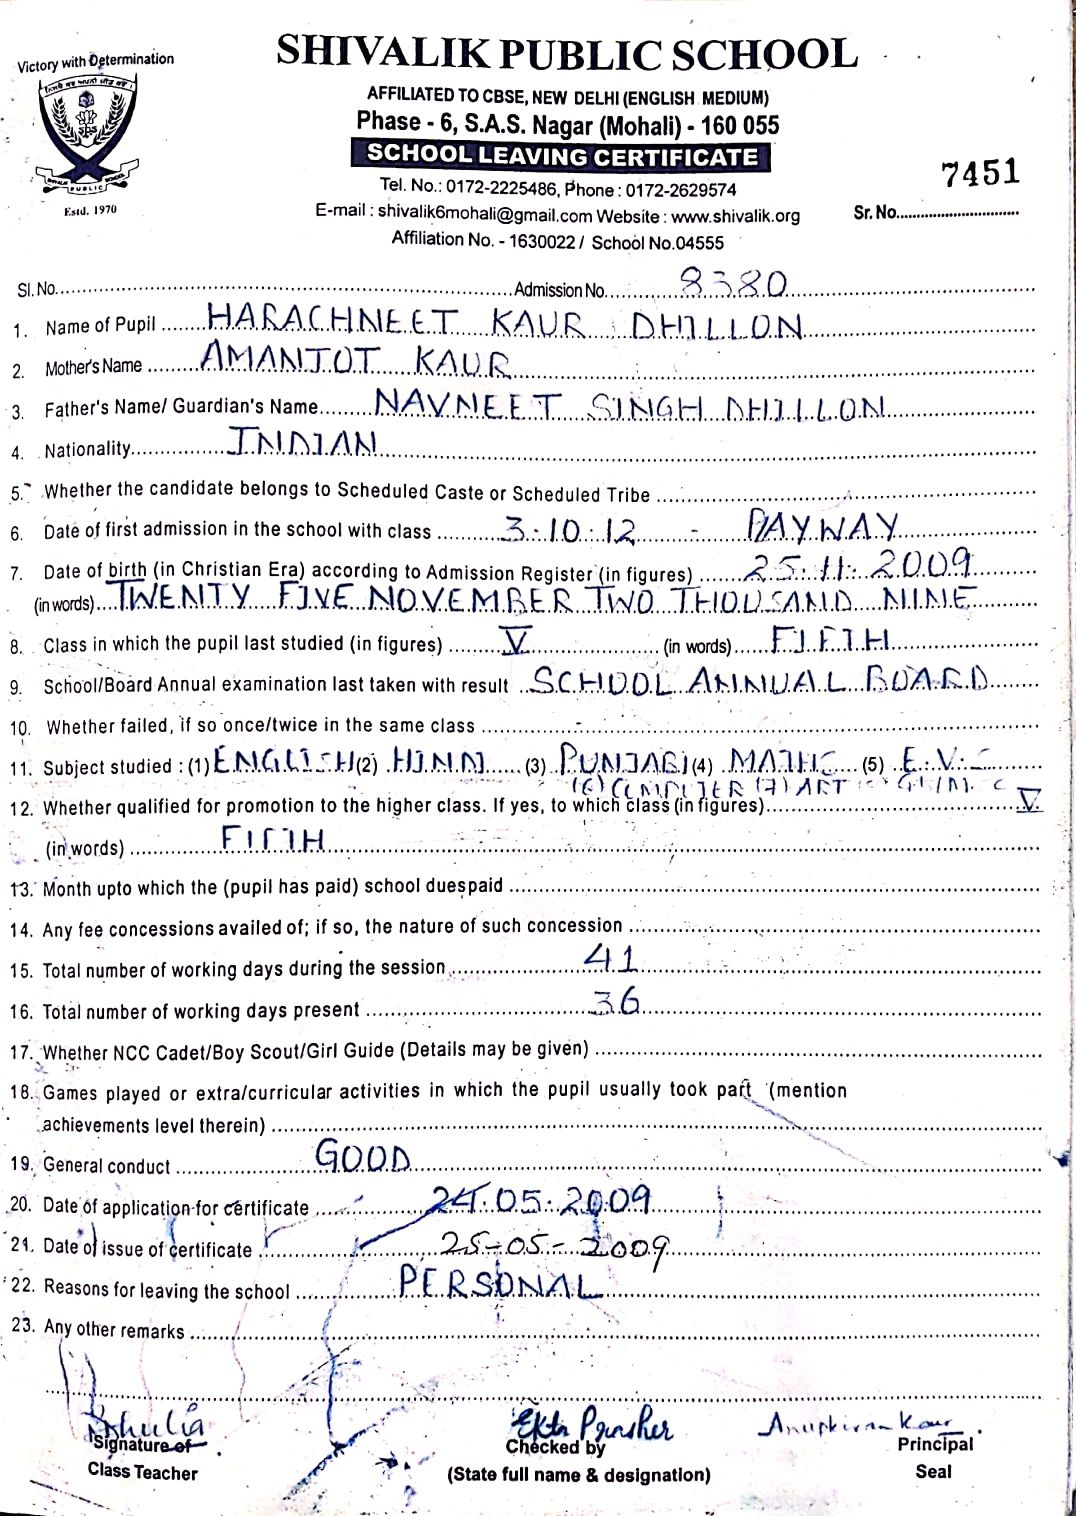 Victory with Determination
SHIVALIK PUBLIC SCHOOL
AFFILIATED TO CBSE, NEW DELHI (ENGLISH MEDIUM)
Phase - 6, S.A.S. Nagar (Mohali) - 160 055
SCHOOL LEAVING CERTIFICATE
7451
Tel. No.: 0172-2225486, Phone : 0172-2629574
Estd. 1970
E-mail : shivalik6mohali@gmail.com Website : www.shivalik.org
Sr. No.
Affiliation No. - 1630022 / School No.04555
Sl. No. Admission No. 8380
1. Name of Pupil HARACHNEET KAUR DHILLON
2. Mother's Name AMANJOT KAUR
3. Father's Name/ Guardian's Name NAVNEET SINGH DHILLON
4. Nationality INDIAN
5. Whether the candidate belongs to Scheduled Caste or Scheduled Tribe
6. Date of first admission in the school with class 3.10.12 - PAYWAY
7. Date of birth (in Christian Era) according to Admission Register (in figures) 25.11.2009
(in words) TWENTY FIVE NOVEMBER TWO THOUSAND NINE
8. Class in which the pupil last studied (in figures) V (in words) FIFTH
9. School/Board Annual examination last taken with result SCHOOL ANNUAL BOARD
10. Whether failed, if so once/twice in the same class -
11. Subject studied : (1) ENGLISH (2) HINDI (3) PUNJABI (4) MATHS (5) E.V.S
(6) COMPUTER (7) ART
12. Whether qualified for promotion to the higher class. If yes, to which class (in figures) V
(in words) FIFTH
13. Month upto which the (pupil has paid) school dues paid
14. Any fee concessions availed of; if so, the nature of such concession
15. Total number of working days during the session 41
16. Total number of working days present 36
17. Whether NCC Cadet/Boy Scout/Girl Guide (Details may be given)
18. Games played or extra/curricular activities in which the pupil usually took part (mention
achievements level therein)
19. General conduct GOOD
20. Date of application for certificate 24.05.2009
21. Date of issue of certificate 25-05-2009
22. Reasons for leaving the school PERSONAL
23. Any other remarks
Ekta Anupkiran Kaur
Signature of Checked by Principal
Class Teacher (State full name & designation) Seal